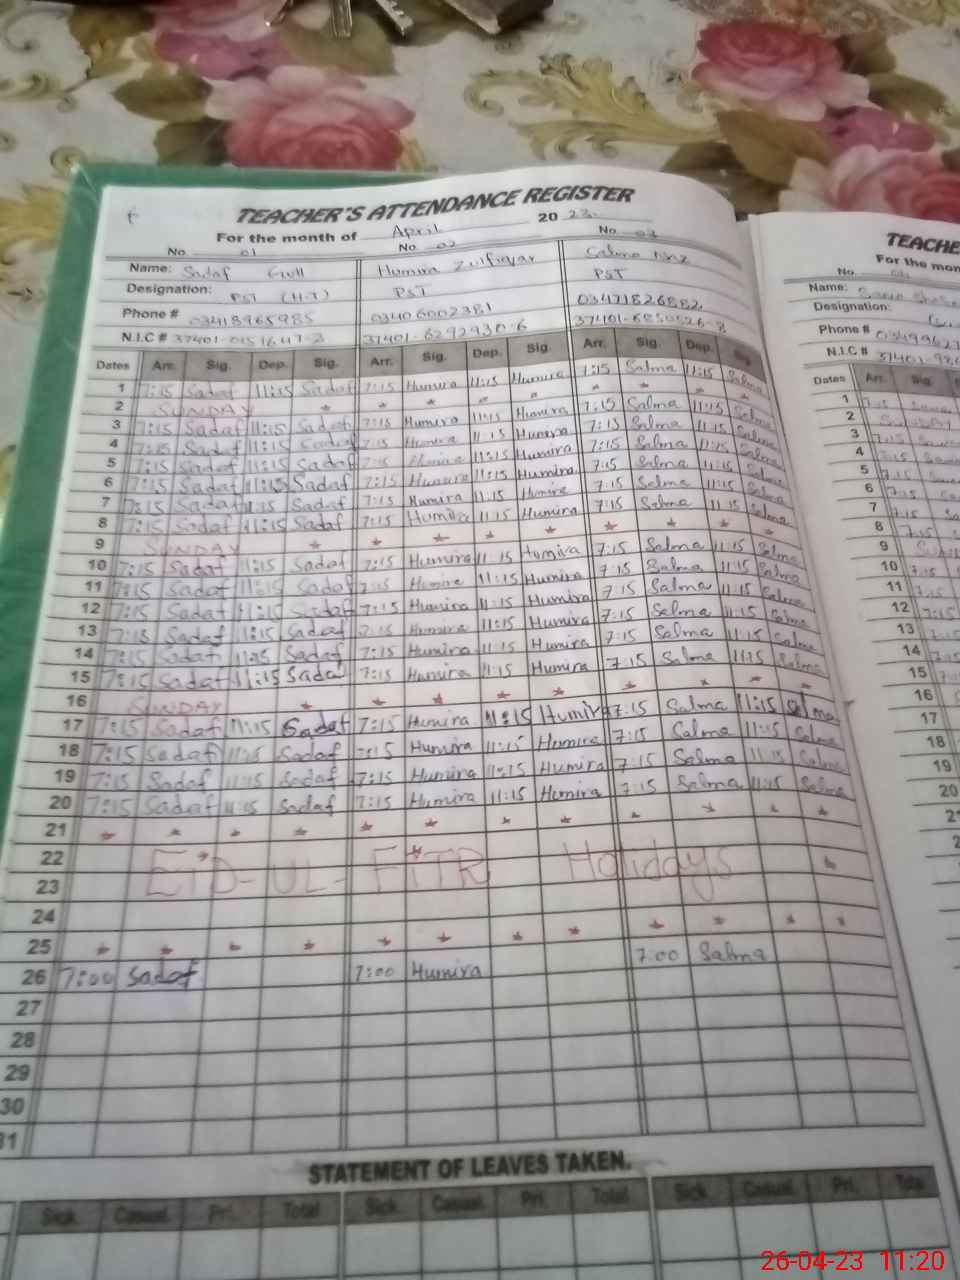 TEACHER'S ATTENDANCE REGISTER
For the month of April 2023.
No. 01 No. 02 No. 03
Name: Sadaf Gull Humira Zulfiqar Salma
Designation: PST (H.T) PST PST
Phone # 03418965985 03406002381 03471826882
N.I.C # 37401-0151647-2 37401-6292930-6 37401-6850526-8
Dates Arr. Sig. Dep. Sig. Arr. Sig. Dep. Sig. Arr. Sig. Dep. Sig.
1 7:15 Sadaf 11:15 Sadaf 7:15 Humira 11:15 Humira 7:15 Salma 11:15 Salma
2 SUNDAY
3 7:15 Sadaf 11:15 Sadaf 7:15 Humira 11:15 Humira 7:15 Salma 11:15 Salma
4 7:15 Sadaf 11:15 Sadaf 7:15 Humira 11:15 Humira 7:15 Salma 11:15 Salma
5 7:15 Sadaf 11:15 Sadaf 7:15 Humira 11:15 Humira 7:15 Salma 11:15 Salma
6 7:15 Sadaf 11:15 Sadaf 7:15 Humira 11:15 Humira 7:15 Salma 11:15 Salma
7 7:15 Sadaf 11:15 Sadaf 7:15 Humira 11:15 Humira 7:15 Salma 11:15 Salma
8 7:15 Sadaf 11:15 Sadaf 7:15 Humira 11:15 Humira 7:15 Salma 11:15 Salma
9 SUNDAY
10 7:15 Sadaf 11:15 Sadaf 7:15 Humira 11:15 Humira 7:15 Salma 11:15 Salma
11 7:15 Sadaf 11:15 Sadaf 7:15 Humira 11:15 Humira 7:15 Salma 11:15 Salma
12 7:15 Sadaf 11:15 Sadaf 7:15 Humira 11:15 Humira 7:15 Salma 11:15 Salma
13 7:15 Sadaf 11:15 Sadaf 7:15 Humira 11:15 Humira 7:15 Salma 11:15 Salma
14 7:15 Sadaf 11:15 Sadaf 7:15 Humira 11:15 Humira 7:15 Salma 11:15 Salma
15 7:15 Sadaf 11:15 Sadaf 7:15 Humira 11:15 Humira 7:15 Salma 11:15 Salma
16 SUNDAY
17 7:15 Sadaf 11:15 Sadaf 7:15 Humira 11:15 Humira 7:15 Salma 11:15 Salma
18 7:15 Sadaf 11:15 Sadaf 7:15 Humira 11:15 Humira 7:15 Salma 11:15 Salma
19 7:15 Sadaf 11:15 Sadaf 7:15 Humira 11:15 Humira 7:15 Salma 11:15 Salma
20 7:15 Sadaf 11:15 Sadaf 7:15 Humira 11:15 Humira 7:15 Salma 11:15 Salma
21
22 EID-UL-FITR Holidays
23
24
25
26 7:00 Sadaf 7:00 Humira 7:00 Salma
27
28
29
30
31
STATEMENT OF LEAVES TAKEN.
Sick Casual Pri. Total Sick Casual Pri. Total Sick Casual Pri. Total
TEACHE
For the mon
No.
Name:
Designation:
Phone #
N.I.C #
Dates Arr. Sig.
1 7:15
2
3 7:15
4 7:15
5 7:15
6 7:15
7 7:15
8 7:15
9
10 7:15
11 7:15
12 7:15
13 7:15
14 7:15
15 7:15
16
17
18
19
20
26-04-23 11:20